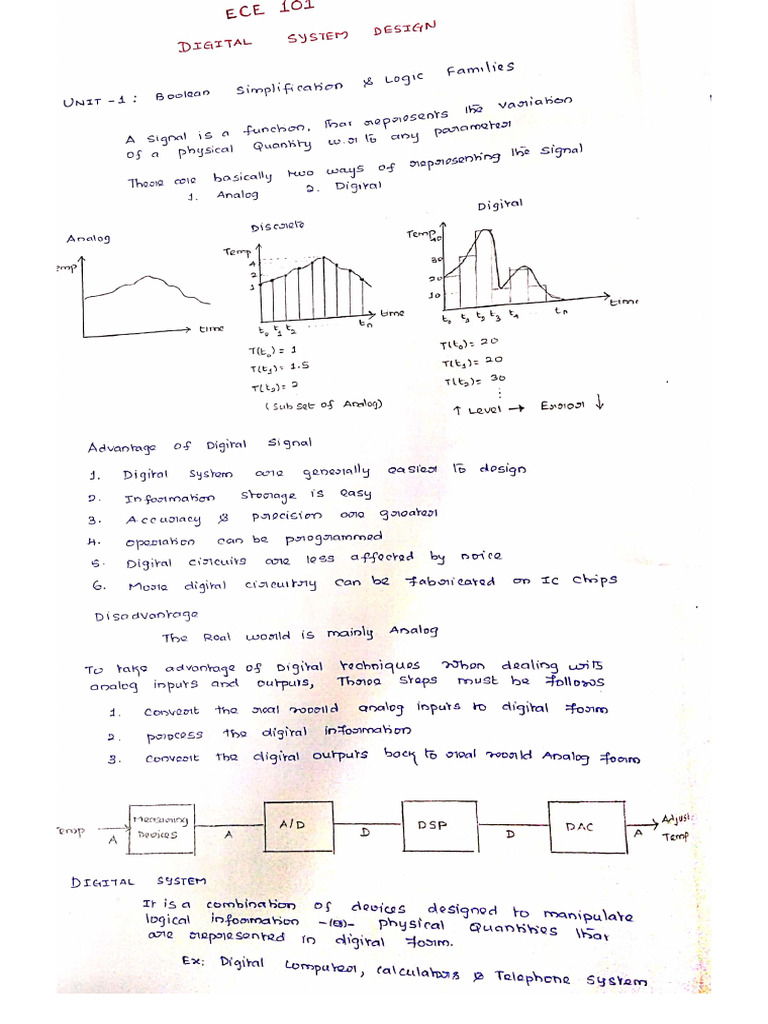 ECE 101
DIGITAL SYSTEM DESIGN
UNIT-1: Boolean Simplification & Logic Families
A signal is a function, that represents the variation
of a physical Quantity w.r.to any parameter
There are basically two ways of representing the signal
1. Analog 2. Digital
Analog
emp
time
Discrete
Temp
4
2
1
t0 t1 t2 ...... tn
time
T(t0) = 1
T(t1) = 1.5
T(t2) = 2
(Subset of Analog)
Digital
Temp
40
30
20
10
t0 t1 t2 t3 t4 ... tn
time
T(t0) = 20
T(t1) = 20
T(t2) = 30
⋮
↑ Level → Error ↓
Advantage of Digital Signal
1. Digital System are generally easier to design
2. Information storage is easy
3. Accuracy & precision are greater
4. operation can be programmed
5. Digital circuits are less affected by noice
6. More digital circuitry can be fabricated on IC chips
Disadvantage
The Real world is mainly Analog
To take advantage of Digital techniques when dealing with
analog inputs and outputs, Three steps must be follows
1. Convert the real world analog inputs to digital form
2. process the digital information
3. Convert the digital outputs back to real world Analog form
emp
A
Measuring
Devices
A
A/D
D
DSP
D
DAC
A
Adjust
Temp
DIGITAL SYSTEM
It is a combination of devices designed to manipulate
logical information -(or)- physical Quantities that
are represented in digital form.
Ex: Digital Computer, calculators & Telephone System